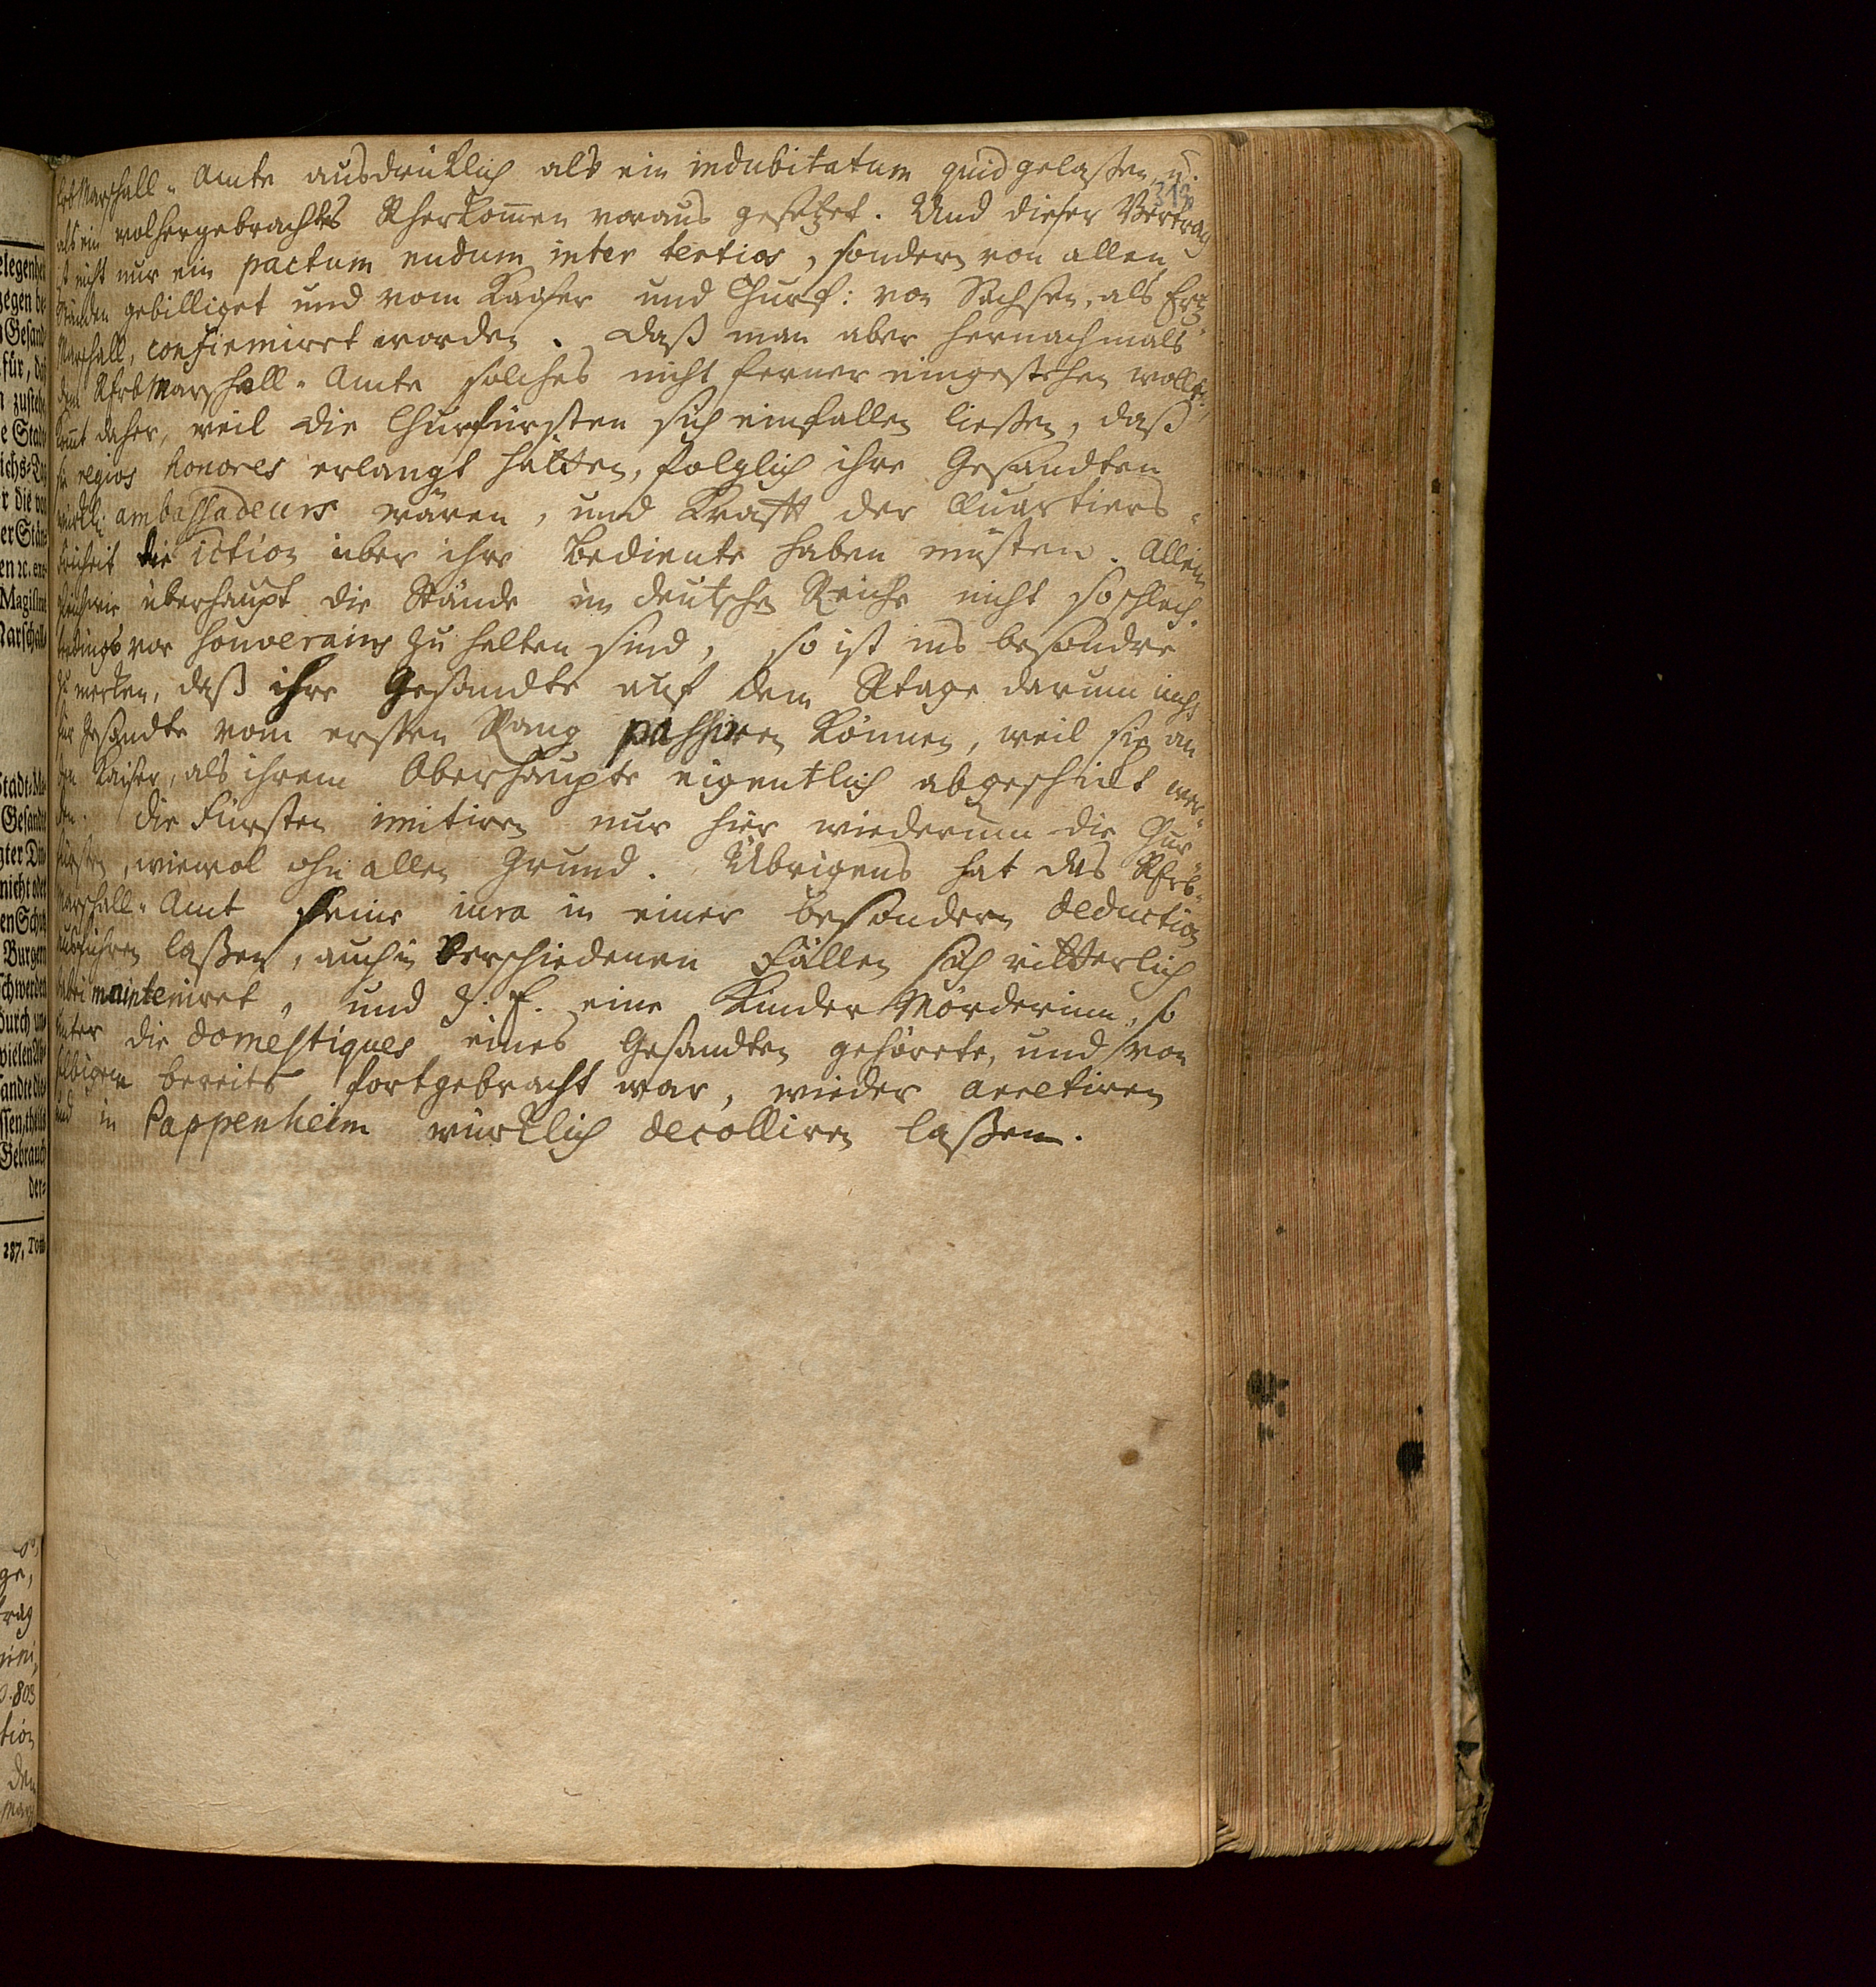 RchsMarschall-Amte ausdrüklich als ein indubitatum quid gelaßen, u.
313
als ein wolhergebrachtes Rherkom̅en voraus gesetzet. Und dieser Vertrag
ist nicht nur ein pactum nudum inter tertios, sondern von allen
Ständen gebilliget und vom Kaiser und Churf: von Sachsen, als Ertz
Marschall, confirmiret worden. Daß man aber hernachmals
dem RchsMarschall-Amte solches nicht ferner eingestehen wollte,
kom̅t daher, weil die Churfürsten sich einfallen ließen, daß
sie regios honores erlangt hätten, folglich ihre Gesandten
würkl. ambassadeurs wären, und Krafft der Quartiers-
freiheit die iction über ihre Bediente haben müsten. Allein
gleichwie überhaupt die Stände im deutschen Reiche nicht soschlech-
terdings vor souverains zu halten sind, so ist ins besondre
zu merken, daß ihre Gesandte auf dem Rtage darum nicht
für Gesandte vom ersten Rang passiren können, weil sie an
den Kaiser, als ihrem Oberhaupte eigentlich abgeschikt wer-
den. Die Fürsten imitiren nur hier wiederum die Chur-
fürsten, wiewol ohn allen Grund. Übrigens hat das Rchs-
Marschall-Amt seine iura in einer besondern deduction
ausführen laßen, auch in verschiedenen Fällen sich ritterlich
dabei mainteniret, und z. E. eine Kinder Mörderinn, so
unter die domestiques eines Gesandten gehörete, und von
selbigem bereits fortgebracht war, wieder arretiren
und in Pappenheim würklich decolliren laßen.